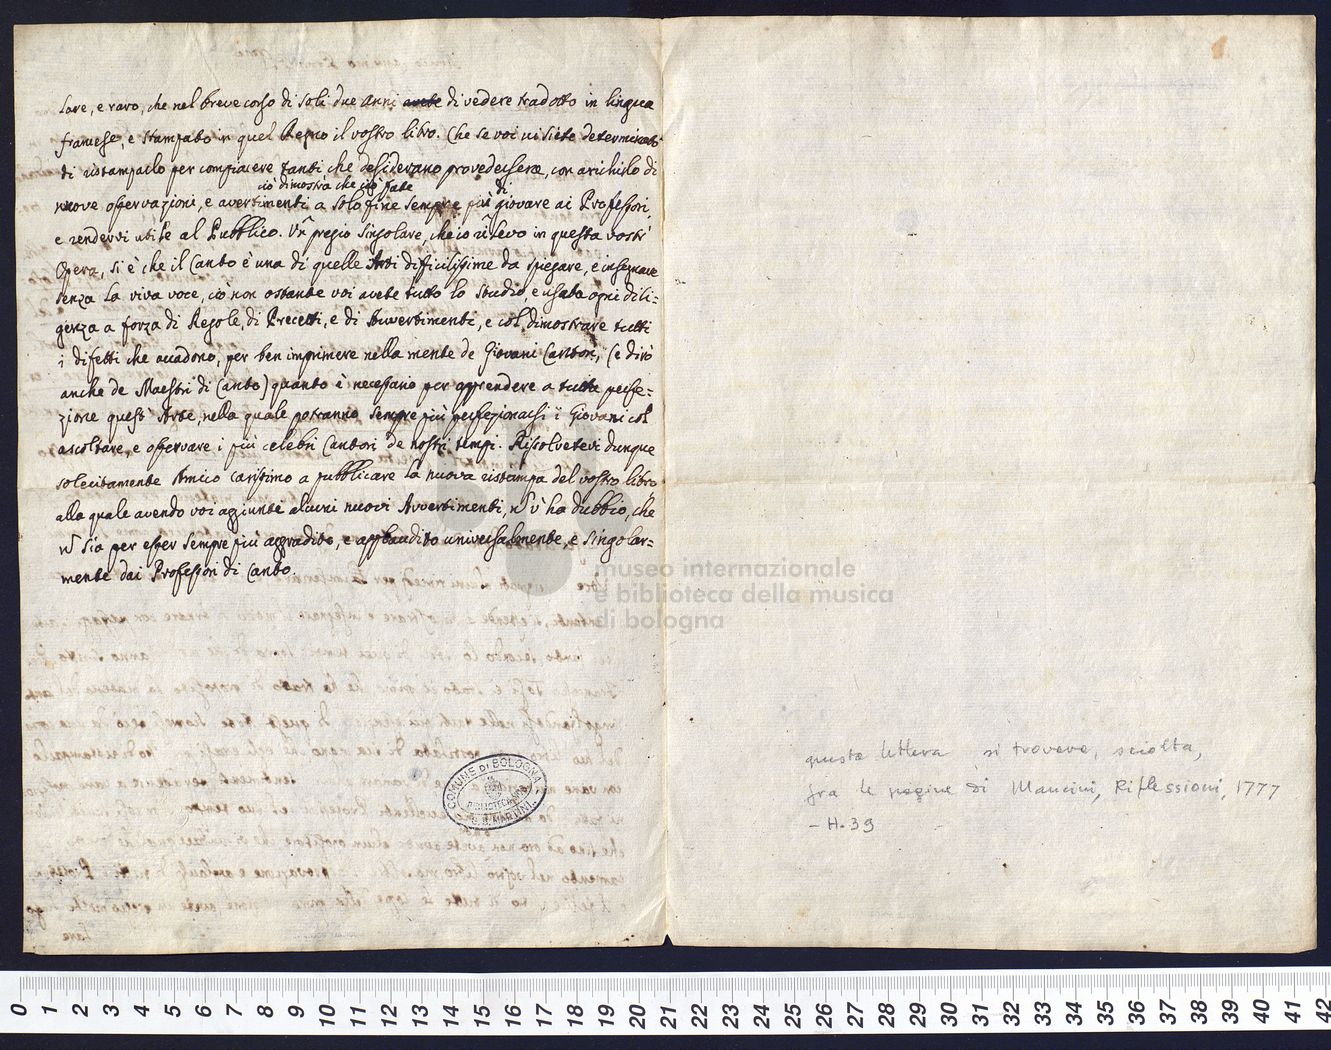 lare, e raro, che nel breve corso di soli due anni avete di vedere tradotto in lingua
francese, e stampato in quel Regno il vostro libro. Che se voi vi siete determinato
di ristampaclo per compiacere tanti, che desiderano provedersene, con arichirlo di
ciò dimostra che ciò fate
di
nuove osservazioni, e avertimenti a solo fine sempre più giovare ai Professori,
e rendervi utile al Pubblico. Un pregio singolare, che io rilevo in questa vostr'
Opera, si è che il Canto è una di quelle Arti dificilissime da spiegare, e insegnare
senza la viva voce, ciò non ostante voi avete tutto lo studio, e usata ogni dili=
genza a forza di Regole, di Precetti, e di Avvertimenti, e col dimostrare tutti
i difetti che accadono, per ben imprimere nella mente de Giovani Cantori, (e dirò
anche de Maestri di Canto) quanto è necessario per apprendere a tutta perfe=
zione quest'Arte, nella quale potranno sempre più perfezionarsi i Giovani col
ascoltare, e osservare i più celebri Cantori de nostri tempi. Rissolvetevi dunque
solecitamente Amico carissimo a pubblicare la nuova ristampa del vostro libro
alla quale avendo voi aggiunti alcuni nuovi Avvertimenti, v'ha dubbio, che
sia per esser sempre più aggradito, e applaudito universalmente, e singolar=
mente dai Professori di Canto.
COMUNE DI BOLOGNA
BIBLIOTECA MUS.
G. B. MARTINI
questa lettera si trovava, sciolta,
fra le pagine di Mancini, Riflessioni, 1777
- H. 39
museo internazionale
e biblioteca della musica
di bologna
0 1 2 3 4 5 6 7 8 9 10 11 12 13 14 15 16 17 18 19 20 21 22 23 24 25 26 27 28 29 30 31 32 33 34 35 36 37 38 39 40 41 42